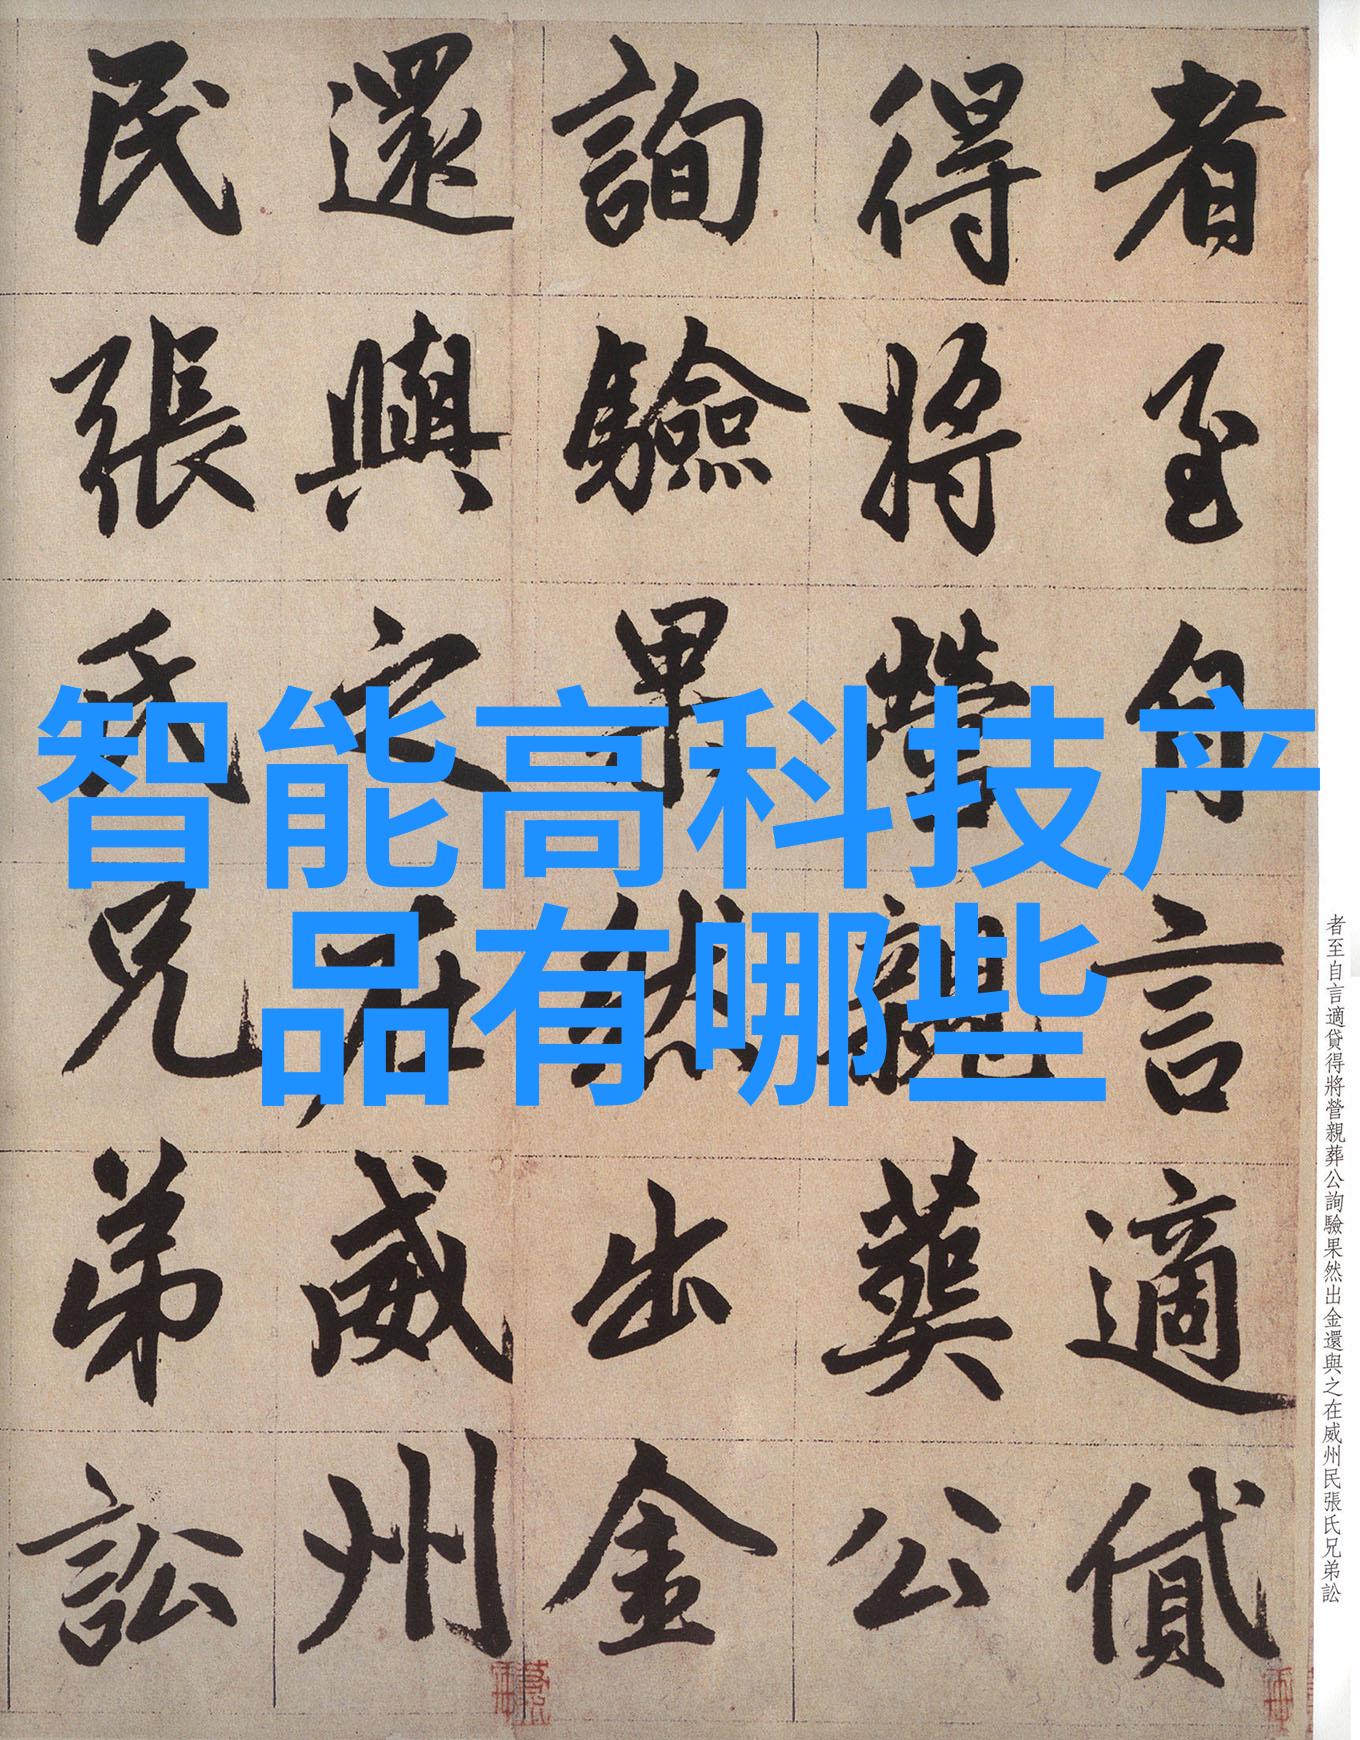 智能高科技产
品有哪些
者至自言適貸
得將營親葬公
詢驗果然出金
還與之在威州
民張氏兄弟訟
者至自言適貸得將營親葬公詢驗果然出金還與之在威州民張氏兄弟訟